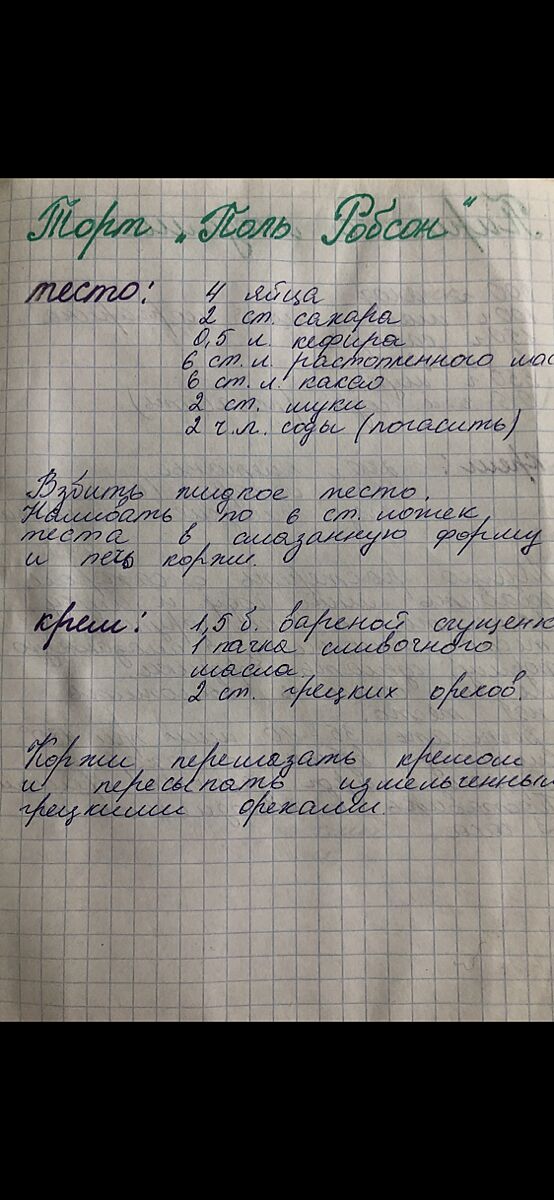 Торт „Поль Робсон“
тесто: 4 яйца
2 ст. сахара
0,5 л. кефира
6 ст. л. растопленного мас
6 ст. л. какао
2 ст. муки
2 ч.л. соды (погасить)
Взбить жидкое тесто.
Наливать по 6 ст. ложек
теста в смазанную форму
и печь коржи.
крем: 1,5 б. вареной сгущенк
1 пачка сливочного
масла.
2 ст. грецких орехов.
Коржи перемазать кремом
и пересыпать измельченным
грецкими орехами.